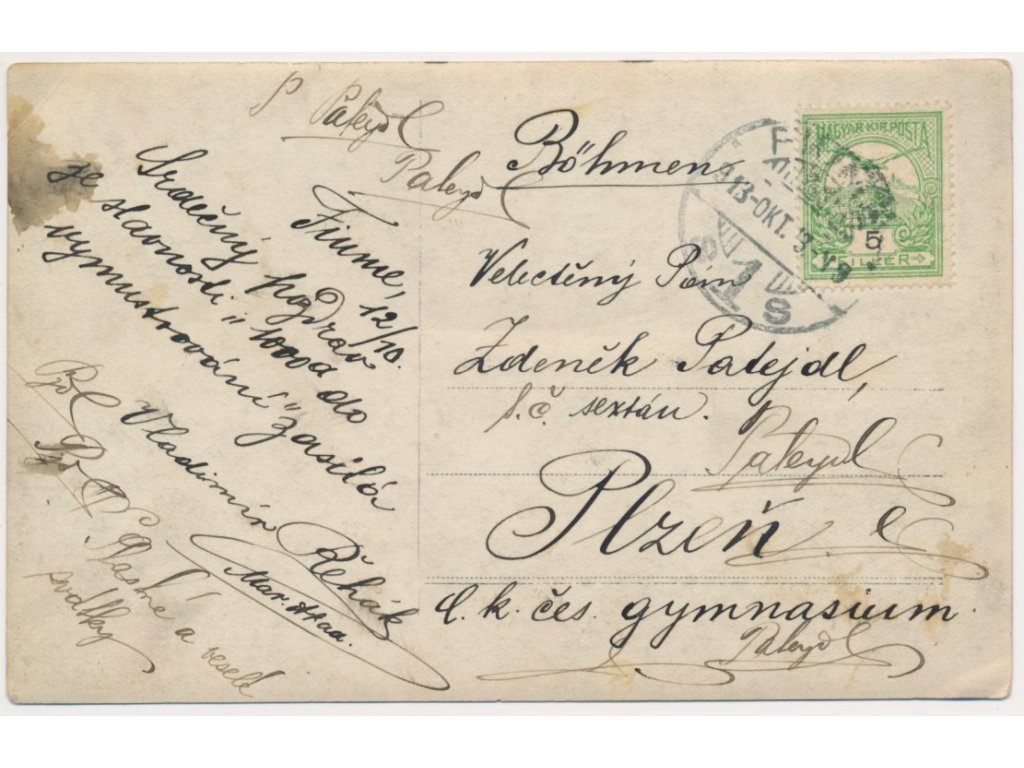 P Pateyd
Pateyd
Fiume, 12/10.
Srdečný pozdrav
ze slavnosti "1000 do
vymustrování" zasílá
Vladimír Řehák
Mar. Akad.
Šťastné a veselé
svátky
Böhmen
Velectěný Pán
Zdeněk Patejdl,
s.č. sextán.
Pateydl
Plzeň.
c. k. čes. gymnasium.
Pateyd
MAGYAR KIR. POSTA
5
FILLER
FIUME
913-OKT. 3
1
S